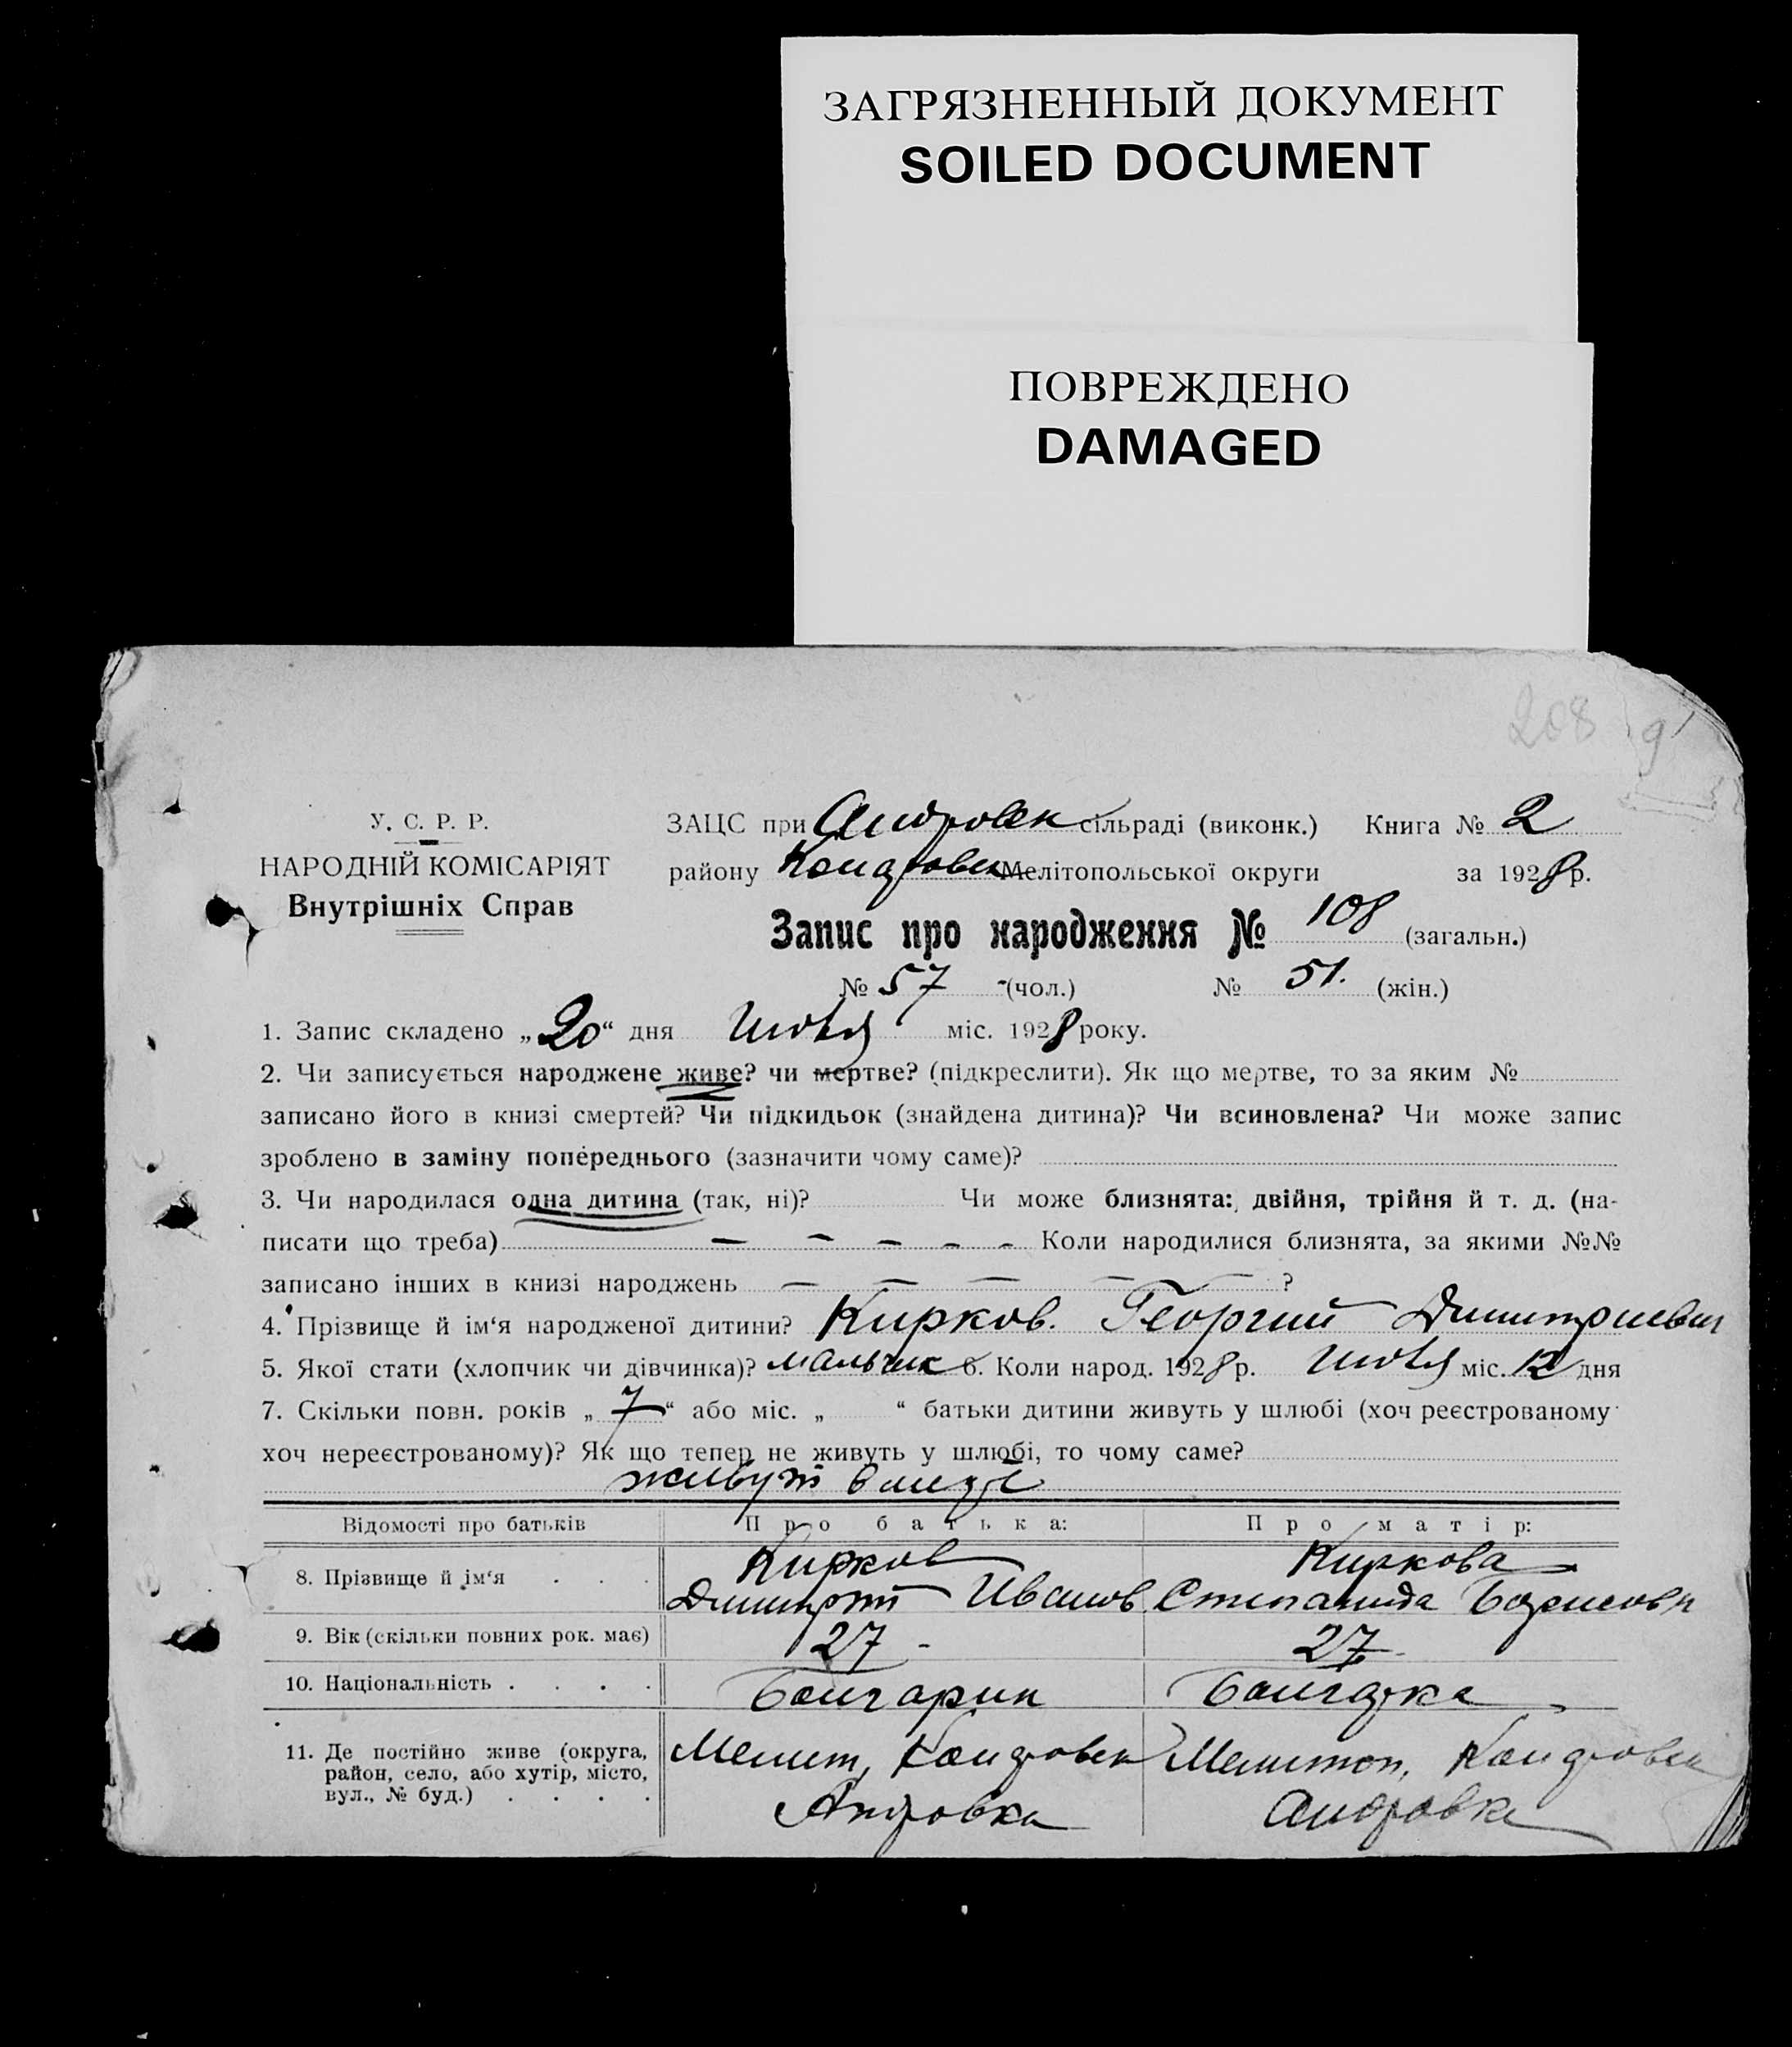 ЗАГРЯЗНЕННЫЙ ДОКУМЕНТ
SOILED DOCUMENT
ПОВРЕЖДЕНО
DAMAGED
208 9
У. С. Р. Р.
НАРОДНІЙ КОМІСАРІЯТ
Внутрішніх Справ
ЗАЦС при Андровск сільраді (виконк.) Книга № 2
району Коларовск Мелітопольської округи за 1928 р.
Запис про народження № 108 (загальн.)
№ 57 (чол.) № 51. (жін.)
1. Запис складено „20“ дня Июля міс. 1928 року.
2. Чи записується народжене живе? чи мертве? (підкреслити). Як що мертве, то за яким №
записано його в книзі смертей? Чи підкидьок (знайдена дитина)? Чи всиновлена? Чи може запис
зроблено в заміну попереднього (зазначити чому саме)?
3. Чи народилася одна дитина (так, ні)? Чи може близнята: двійня, трійня й т. д. (на-
писати що треба) — — — — — Коли народилися близнята, за якими №№
записано інших в книзі народжень — — — — — ?
4. Прізвище й ім‘я народженої дитини? Кирков. Георгий Димитриевич
5. Якої стати (хлопчик чи дівчинка)? мальчик 6. Коли народ. 1928 р. Июля міс. 12 дня
7. Скільки повн. років „7“ або міс. „ “ батьки дитини живуть у шлюбі (хоч реєстрованому
хоч нереєстрованому)? Як що тепер не живуть у шлюбі, то чому саме?
живут
Відомості про батьків Про батька: Про матір:
8. Прізвище й ім‘я . . . Кирков Киркова
Димитрий Иванов. Степанида Борисовн
9. Вік (скільки повних рок. має) 27 - 27 -
10. Національність . . . . Болгарин Болгарка
11. Де постійно живе (округа, район, село, або хутір, місто, вул., № буд.) . . . . Мелит, Коларовск Мелитоп, Коларовск
Андровка Андровка